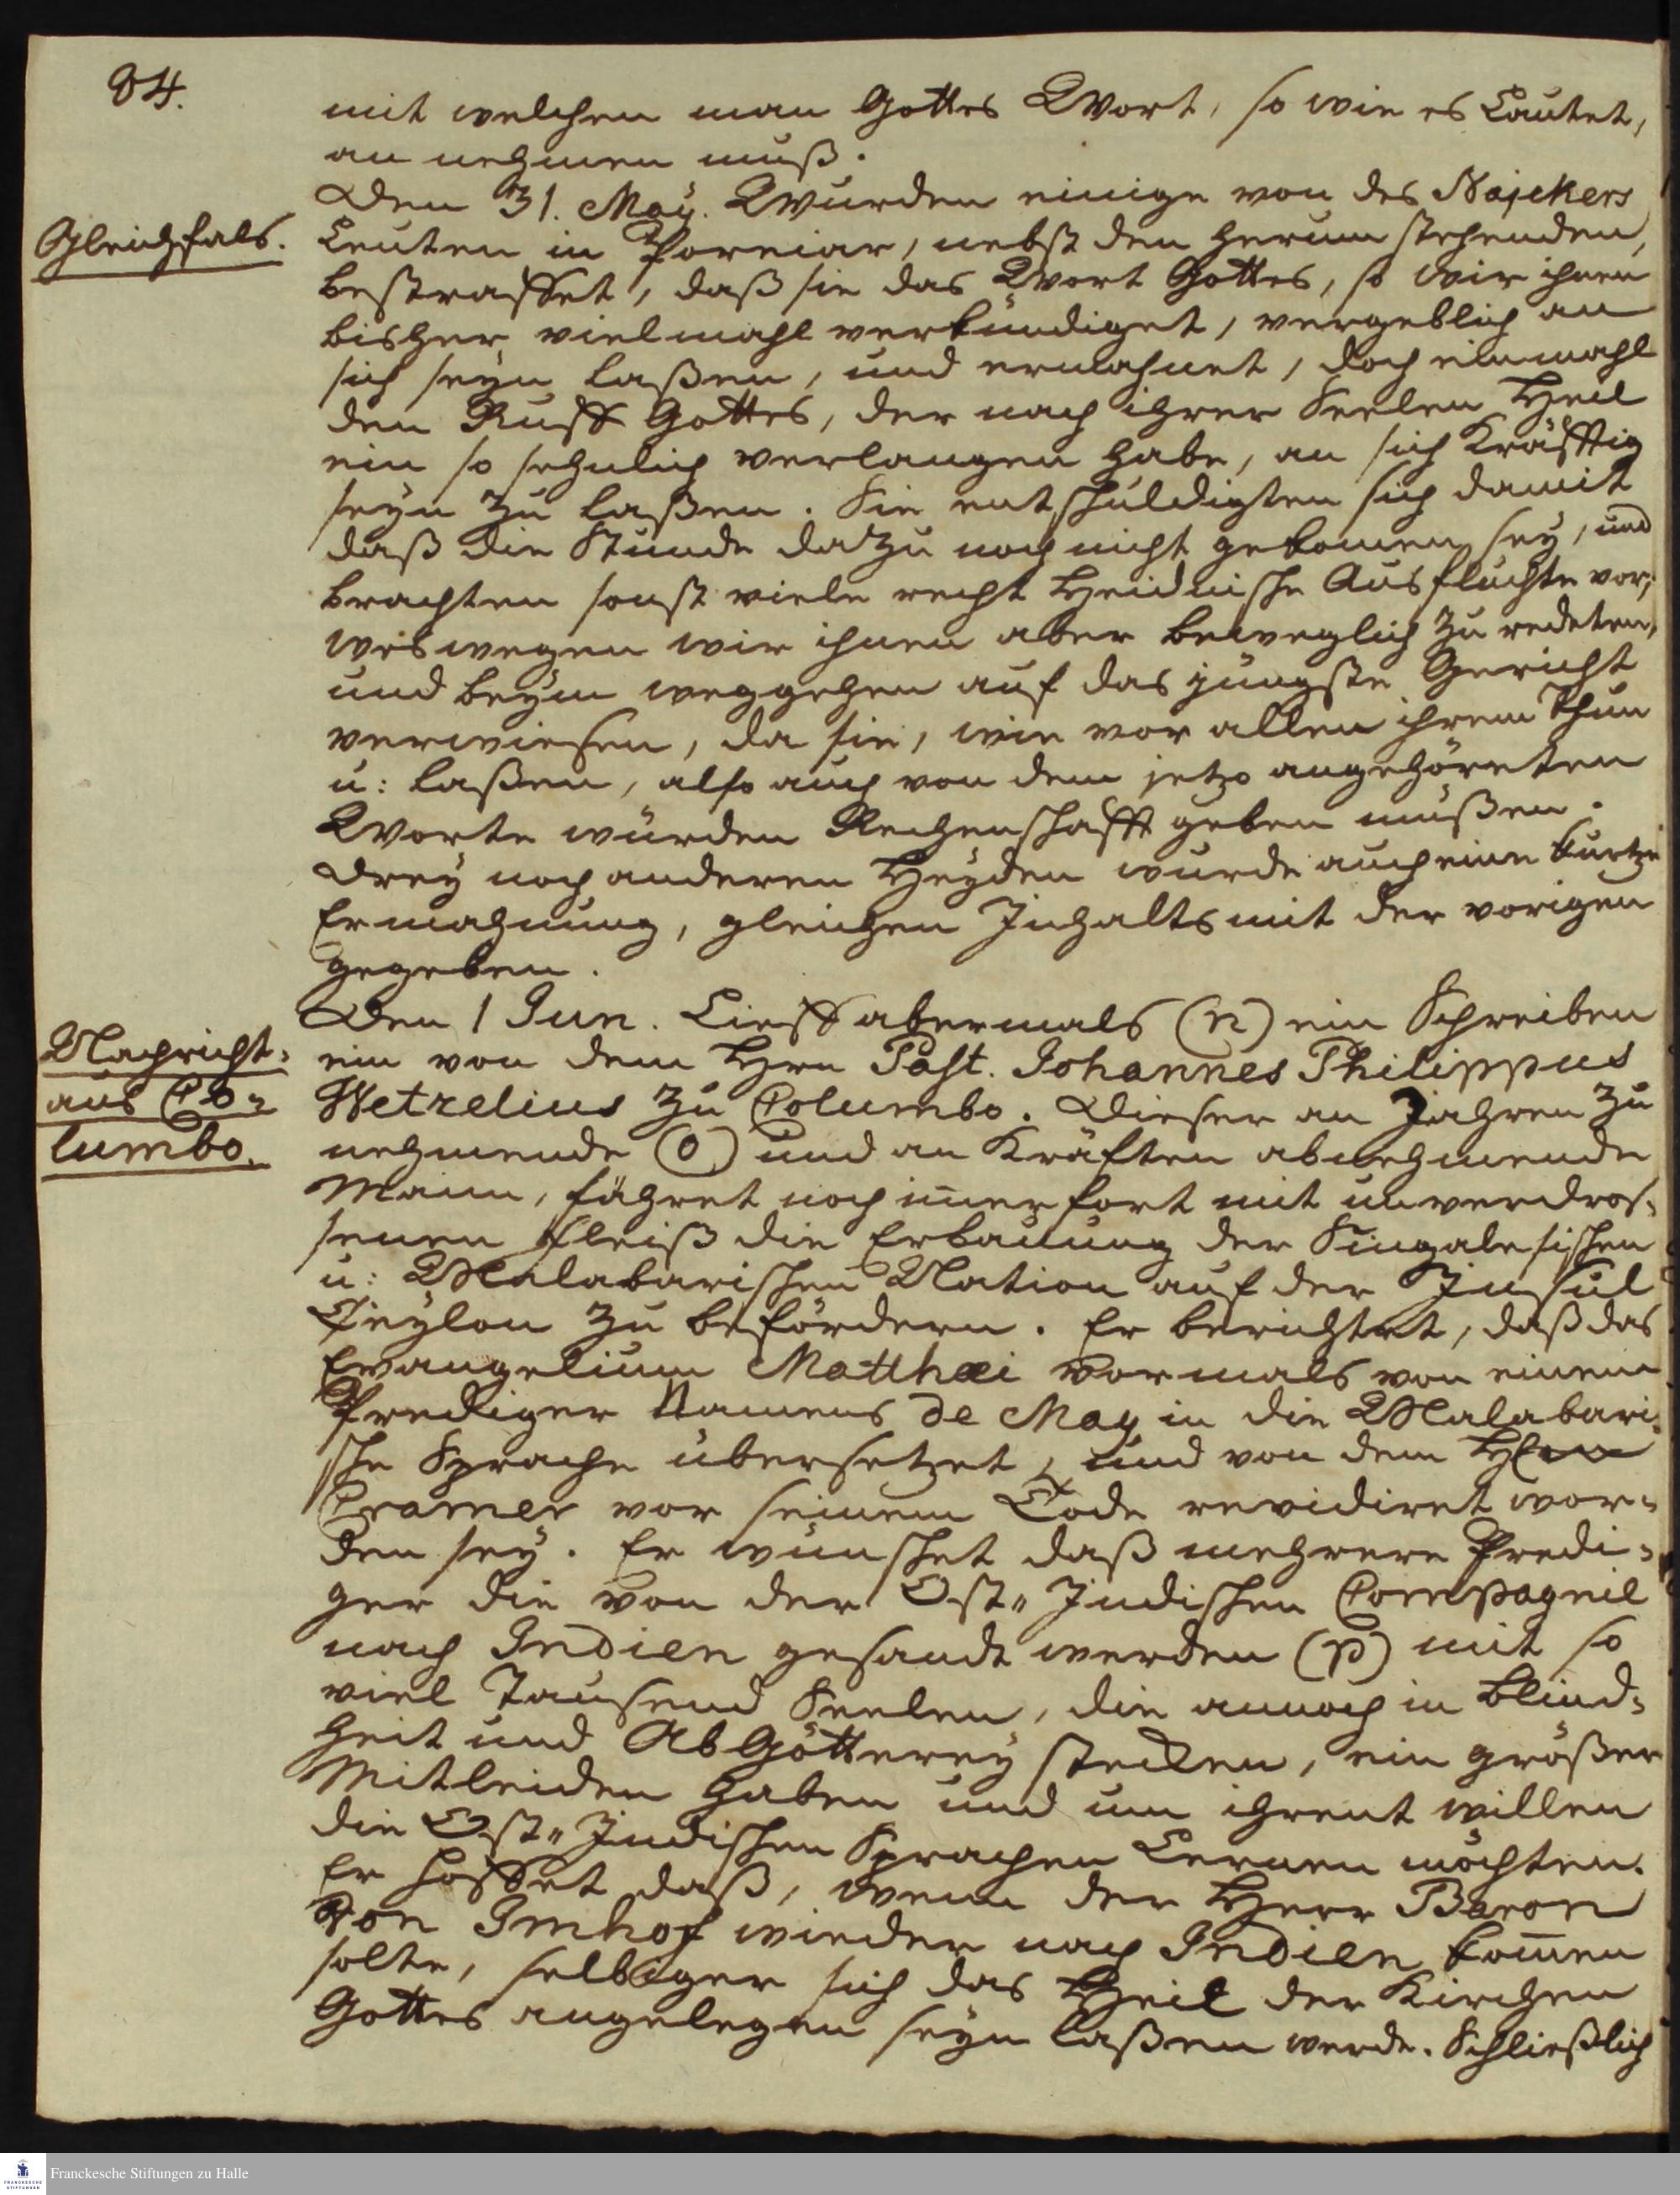 84.
mit welchen man Gottes Wort, so wie es Lautet,
an nehmen muß.
Gleichfals.
Den 31. May. Wurden einige von des Najckers
Leuten in Poreiar, nebst den herum stehenden,
bestraffet, daß sie das Wort Gottes, so wir ihnen
bisher vielmahl verkündiget, vergeblich an
sich seyn laßen, und ermahnet, doch einmahl
den Ruff Gottes, der nach ihrer Seelen Heil
ein so sehnlich verlangen habe, an sich Kräfftig
seyn zu laßen. Sie entschuldigten sich damit
daß die Stunde dazu noch nicht gekomen sey, und
brachten sonst viele recht Heidnische Ausflüchte vor;
weswegen wir ihnen aber beweglich zu redeten,
und beym weggehen auf das jüngste Gericht
verwiesen, da sie, wie vor allen ihrem Thun
u: laßen, also auch von dem jetzo angehöreten
Worte würden Rechenschafft geben müßen.
Drey noch anderen Heyden wurde auch eine kurtze
Ermahnung, gleichen Inhalts mit der vorigen
gegeben.
Nachricht
aus Co-
lumbo.
Den 1 Jun. Lieff abermals (n) ein Schreiben
ein von dem Hrn Past. Johannes Philippus
Wetzelius zu Columbo. Dieser an Jahren zu
nehmende (o) und an Kräften abnehmende
Mann, fähret noch imer fort mit unverdros-
senen fleiß die Erbauung der Singalesischen
u: Malabarischen Nation auf der Insul
Ceylon zu befördern. Er berichtet, daß das
Evangelium Matthæi vormals von einem
Prediger Namens de May in die Malabari-
sche Sprache übersetzet, und von dem Hrn
Cramer vor seinem Tode revidiret wor-
den sey. Er wünschet daß mehrere Predi-
ger die von der Ost-Indischen Compagnie
nach Indien gesandt werden (p) mit so
viel Tausend Seelen, die annoch in Blind-
heit und AbGötterey stecken, ein größer
Mitleiden haben und um ihrent willen
die Ost-Indischen Sprachen Lernen möchten.
Er hoffet daß, wenn der Herr Baron
von Imhof wieder nach Indien komen
solte, selbiger sich das Heil der Kirchen
Gottes angelegen seyn laßen werde. Schließlich
Franckesche Stiftungen zu Halle